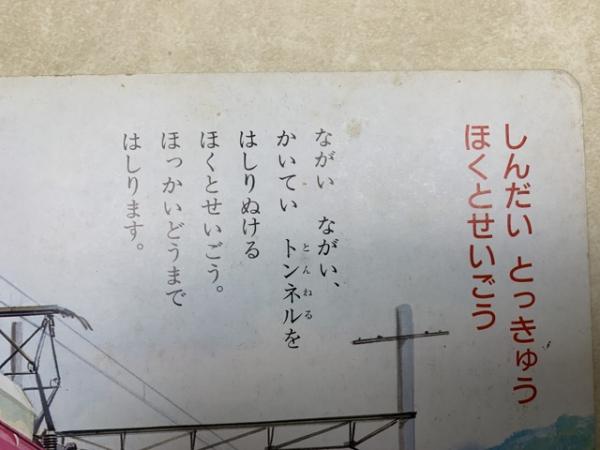 しんだい とっきゅう
ほくとせいごう
ながい ながい、
かいてい トンネルを
とんねる
はしりぬける
ほくとせいごう。
ほっかいどうまで
はしります。